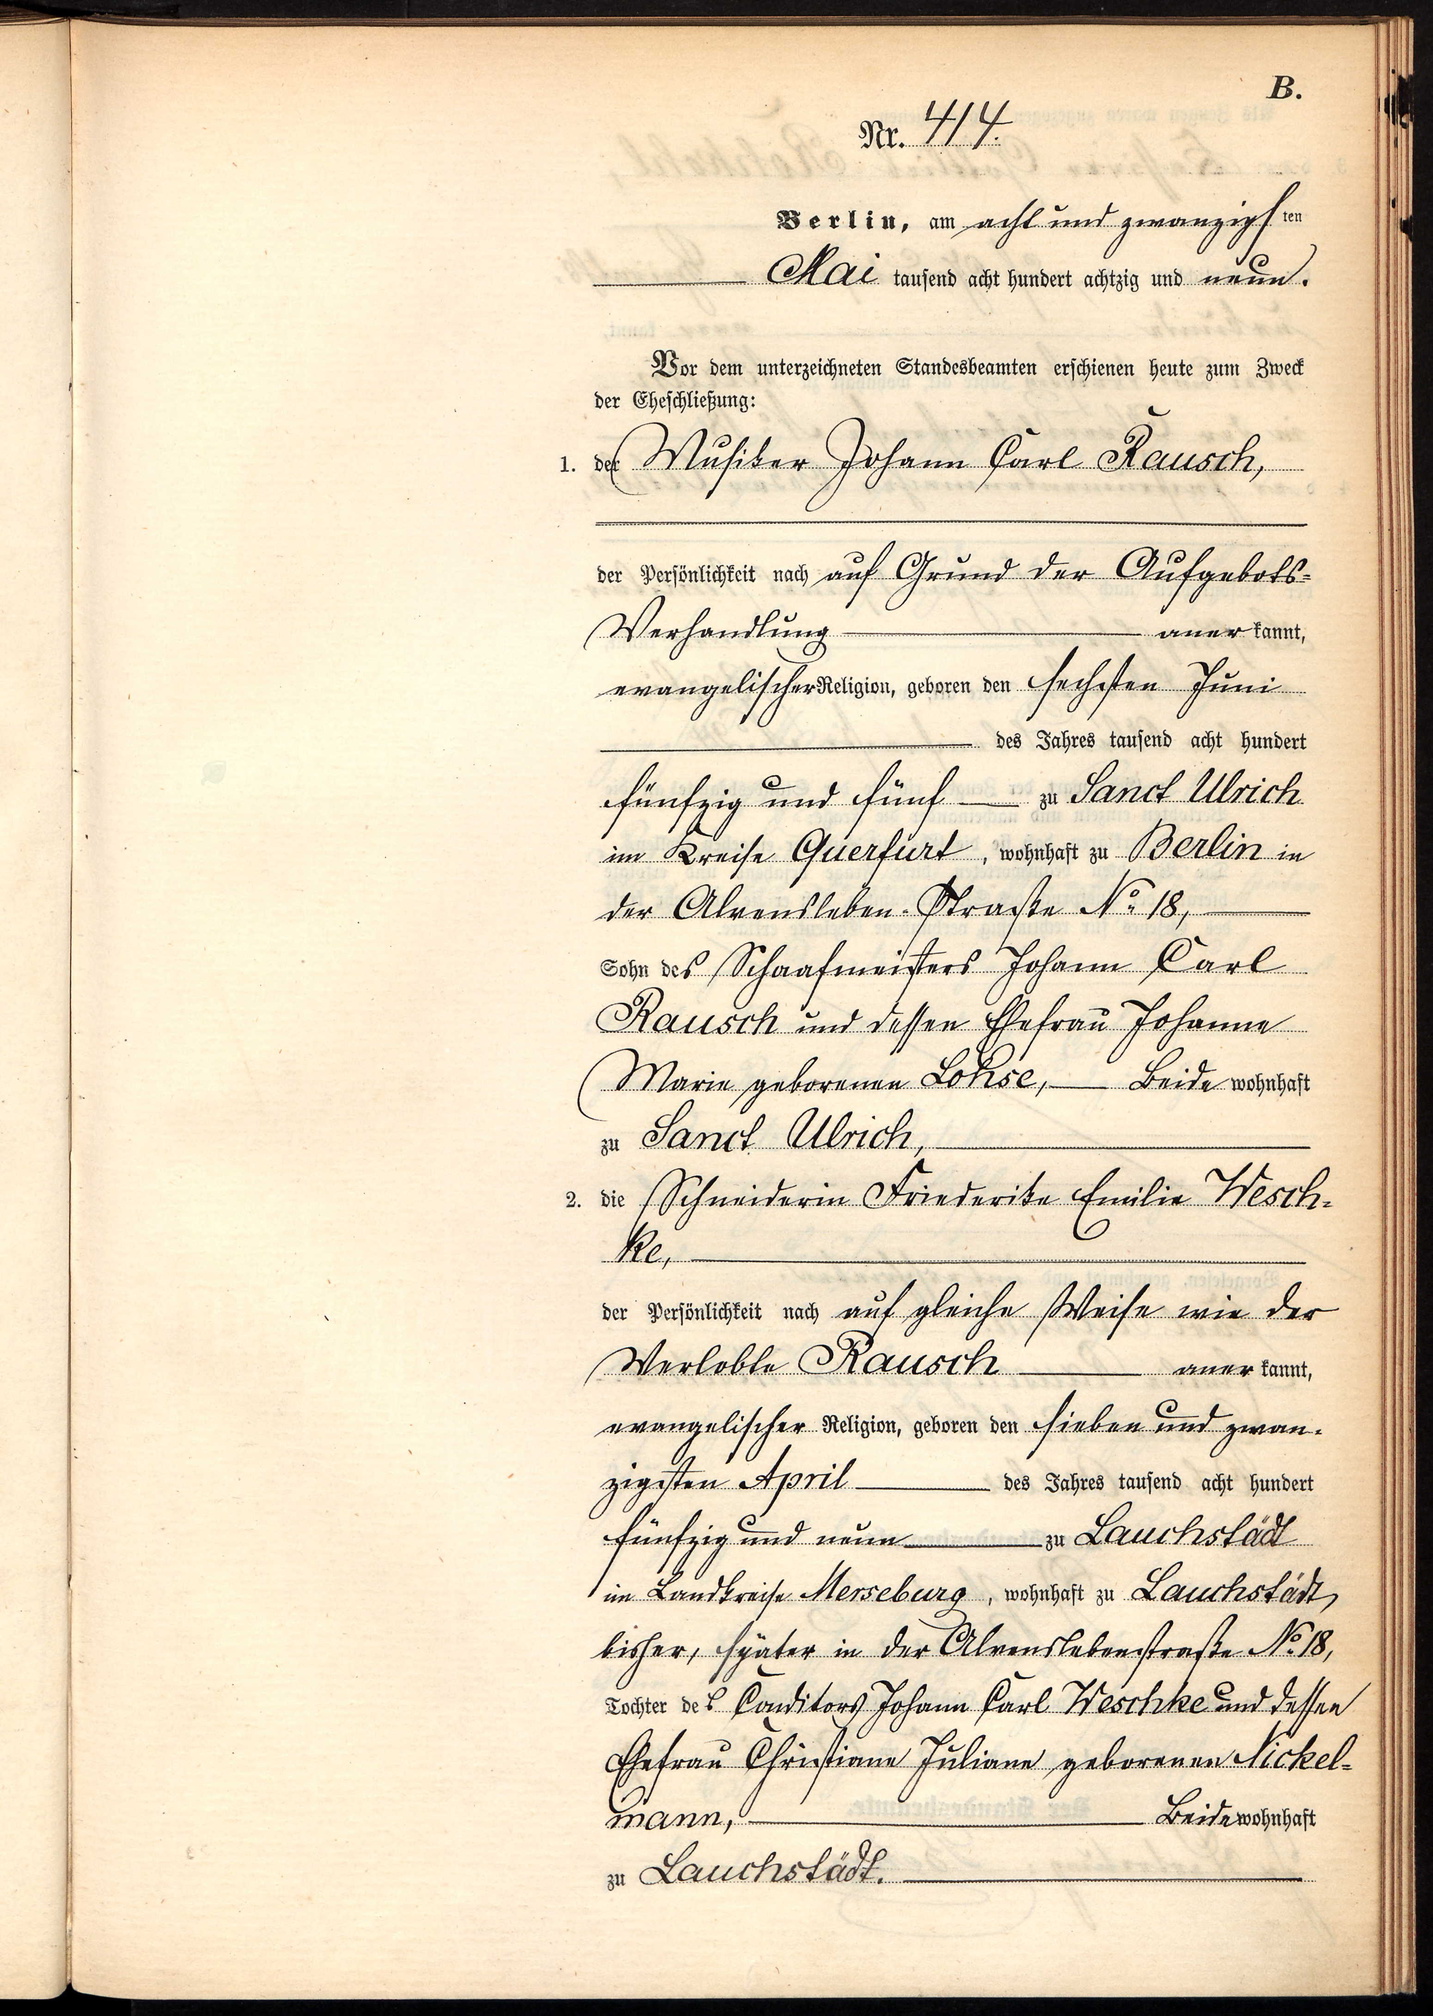 B.
Nr. 414.
Berlin, am acht und zwanzigsten
Mai tausend acht hundert achtzig und neun.
Vor dem unterzeichneten Standesbeamten erschienen heute zum Zweck
der Eheschließung:
1. der Musiker Johann Carl Rausch,
der Persönlichkeit nach auf Grund der Aufgebots-
Verhandlung anerkannt,
evangelischer Religion, geboren den sechsten Juni
des Jahres tausend acht hundert
fünfzig und fünf zu Sanct Ulrich
im Kreise Querfurt, wohnhaft zu Berlin in
der Alvensleben-Straße No 18,
Sohn des Schaafmeisters Johann Carl
Rausch und dessen Ehefrau Johanne
Marie geborenen Lohse, Beide wohnhaft
zu Sanct Ulrich,
2. die Schneiderin Friederike Emilie Wesch-
ke,
der Persönlichkeit nach auf gleiche Weise wie der
Verlobte Rausch anerkannt,
evangelischer Religion, geboren den sieben und zwan-
zigsten April des Jahres tausend acht hundert
fünfzig und neun zu Lauchstädt
im Landkreise Merseburg, wohnhaft zu Lauchstädt,
bisher, später in der Alvenslebenstraße No 18,
Tochter des Conditors Johann Carl Weschke und dessen
Ehefrau Christiane Juliane geborenen Nickel-
mann, Beide wohnhaft
zu Lauchstädt.